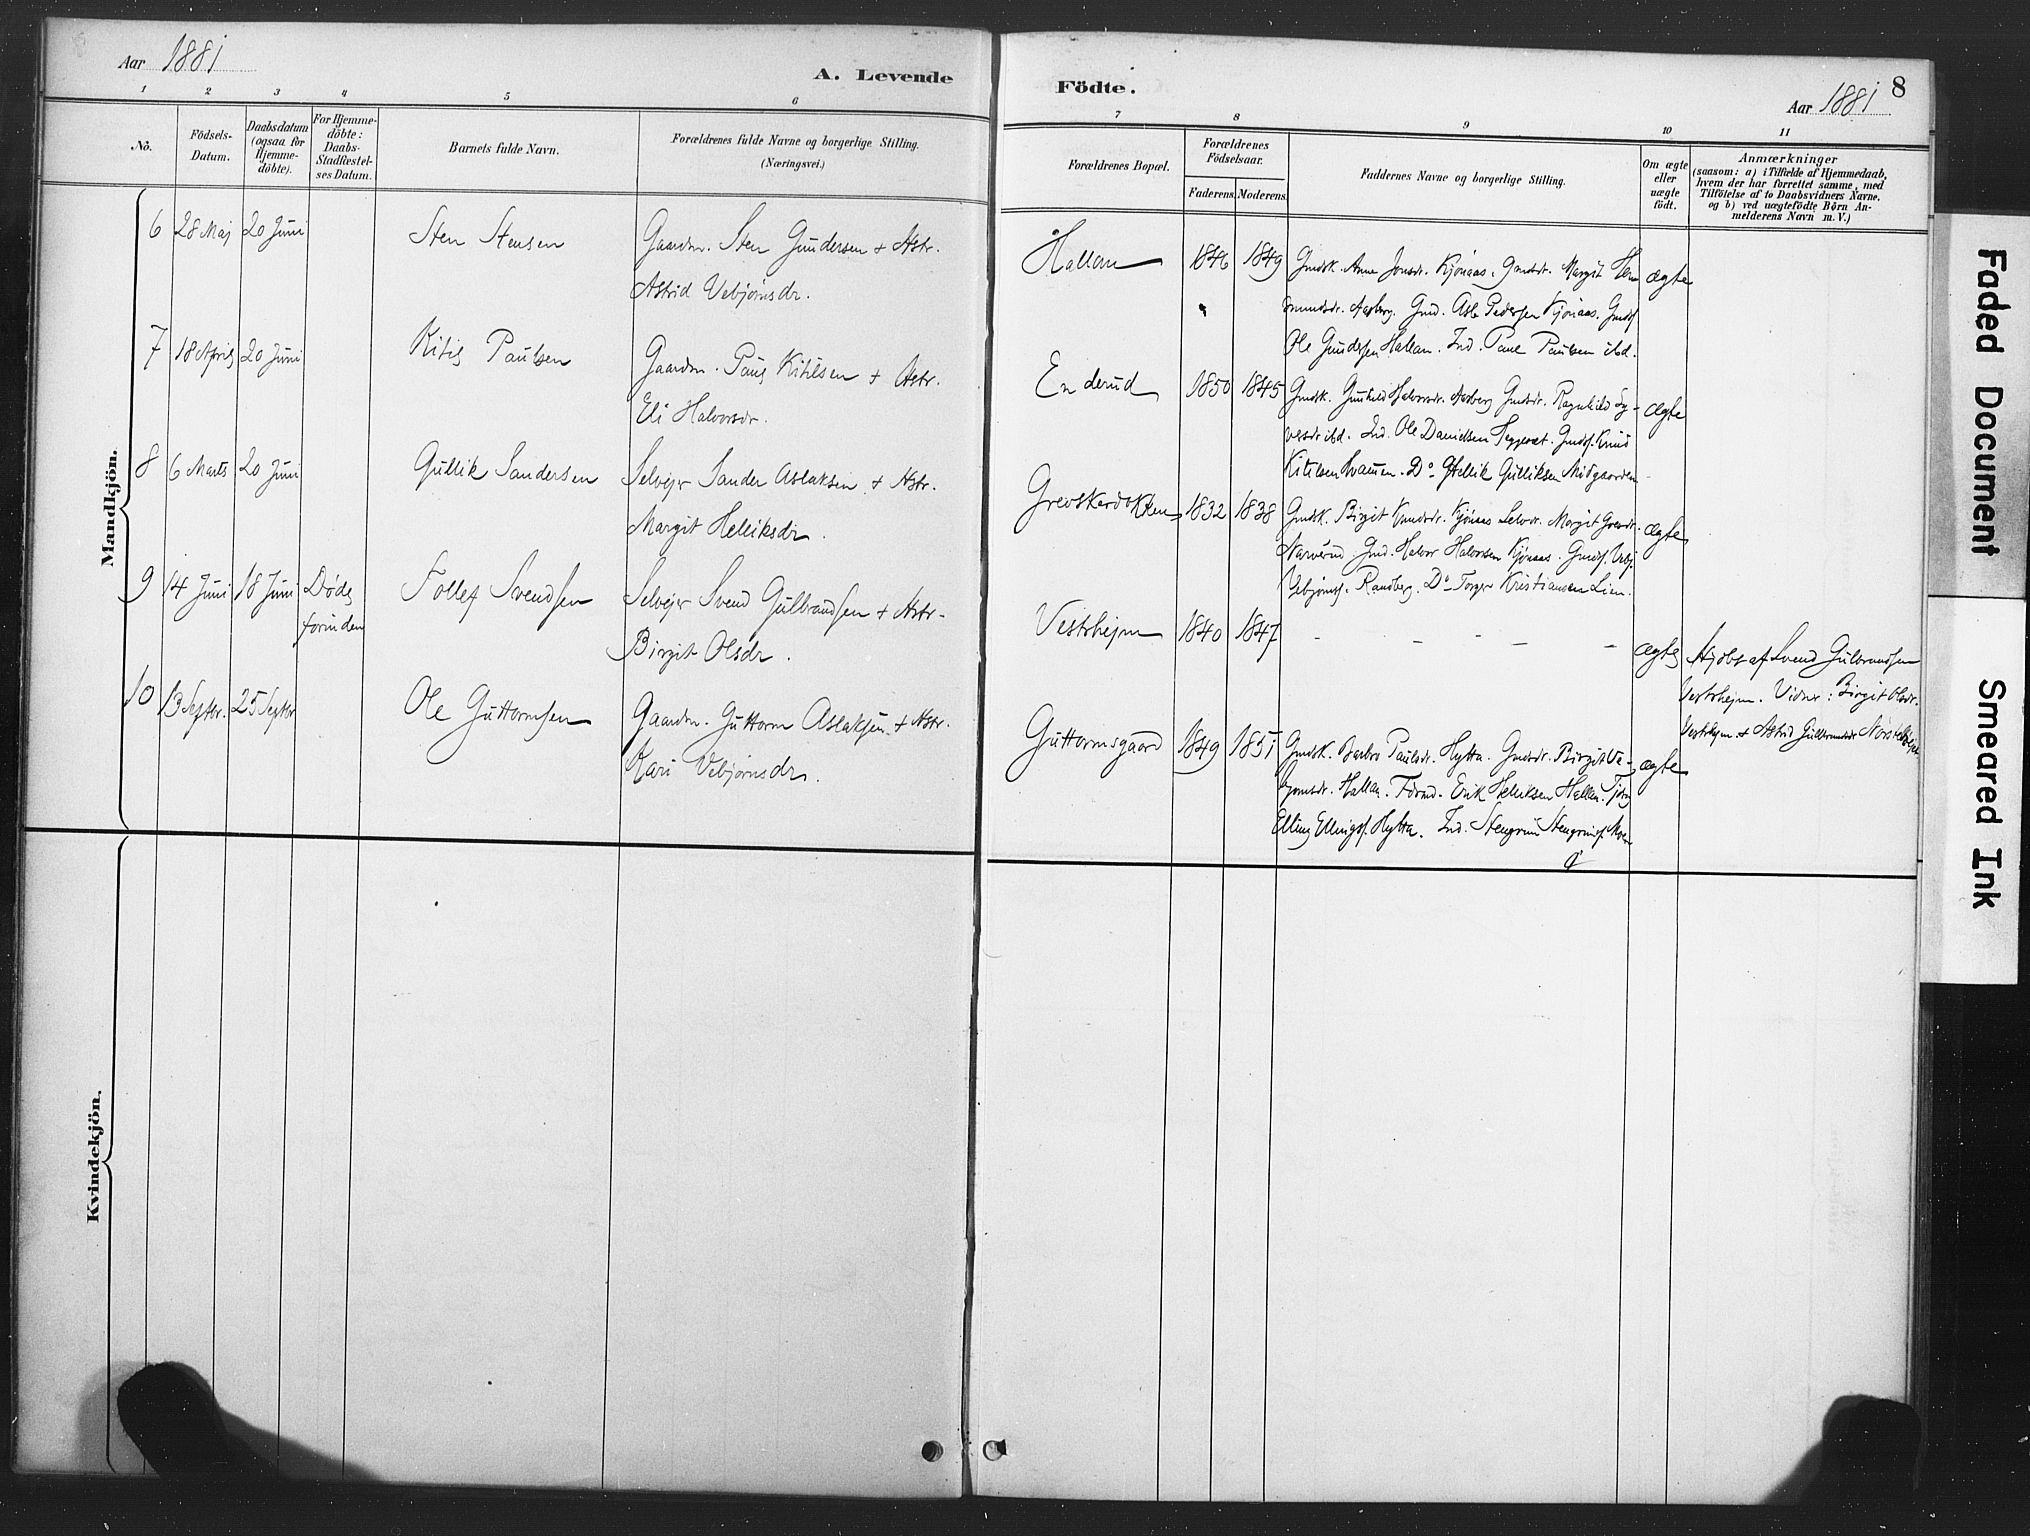 Aar 1881
A. Levende
Födte.
Aar 1881
8
1 2 3 4 5 6 7 8 9 10 11
Nö.
Födsels-
Datum.
Daabsdatum
(ogsaa for
Hjemme-
döbte).
For Hjemme-
döbte:
Daabs-
Stadfæstel-
ses Datum.
Barnets fulde Navn.
Forældrenes fulde Navne og borgerlige Stilling.
(Næringsvei.)
Forældrenes Bopæl.
Forældrenes
Födselsaar.
Faderens. Moderens.
Faddernes Navne og borgerlige Stilling.
Om ægte
eller
uægte
födt.
Anmærkninger
(saasom: a) i Tilfælde af Hjemmedaab,
hvem der har forrettet samme, med
Tilföielse af to Daabsvidners Navne.
og b) ved uægtefödte Börn An-
melderens Navn m. V.)
Mandkjön.
6 28 Maj 20 Juni Sten Stensen Gaardm. Sten Gundersen + Hstr.
Astrid Vebjørnsdr.
Hallan 1846 1849 Gmdsk. Anne Jonsdr. Kjønaas. Gmdsdr. Margit Her
mundsdr. Aasberg. Gmd. Asle Pedersen Kjønaas. Gmdsf
Ole Gundersen Hallan. Ind. Paul Paulsen ibd.
ægte
7 18 April 20 Juni Kitil Paulsen Gaardm. Paul Kitilsen + Hstr.
Eli Halvorsdr.
Enderud 1850 1845 Gmdsk. Gunhild Halvorsdr. Aasberg Gmdsdr. Ragnhild Sy-
versdr ibd. Ind. Ole Davidsen Gmdsf. Knud
Kitilsen Do Hellik Gulliksen Midgaarden
ægte
8 6 Marts 20 Juni Gullik Sandersen Selvejer Sander Aslaksen + Hstr.
Margit Helliksdr.
Grevskerdokken 1832 1838 Gmdsk. Birgit Knudsdr. Kjønaas Margit
Narverud. Gmd. Halvor Halvorsen Kjønaas. Gmdsf. Vebj.
Vebjørnsf. Randberg. Do Torger Kristiansen Lien.
ægte
9 14 Juni 18 Juni Døde
forinden
Tollef Svendsen Selvejer Svend Gulbrandsen + Hstr.
Birgit Olsdr.
Vestshejm 1840 1847 - - - -
ægte
Hjdbt af Svend Gulbrandsen
Vestshejm. Vidner: Birgit Olsdr.
Vestshejm + Astrid Gulbrandsdr
10 13 Septbr. 25 Septbr Ole Guttormsen Gaardm. Guttorm Aslaksen + Hstr.
Kari Vebjørnsdr.
Guttormsgaard 1849 1851 Gmdsk. Barbro Paulsdr. Hytta. Gmdsdr. Birgit Ve-
bjørnsdr. Hallan. Erik Helliksen Hallan.
Elling Ellingsf. Hytta. Ind. Stengrim Stengrimsf. Moen
ægte
Kvindekjön.
Faded Document
Smeared Ink